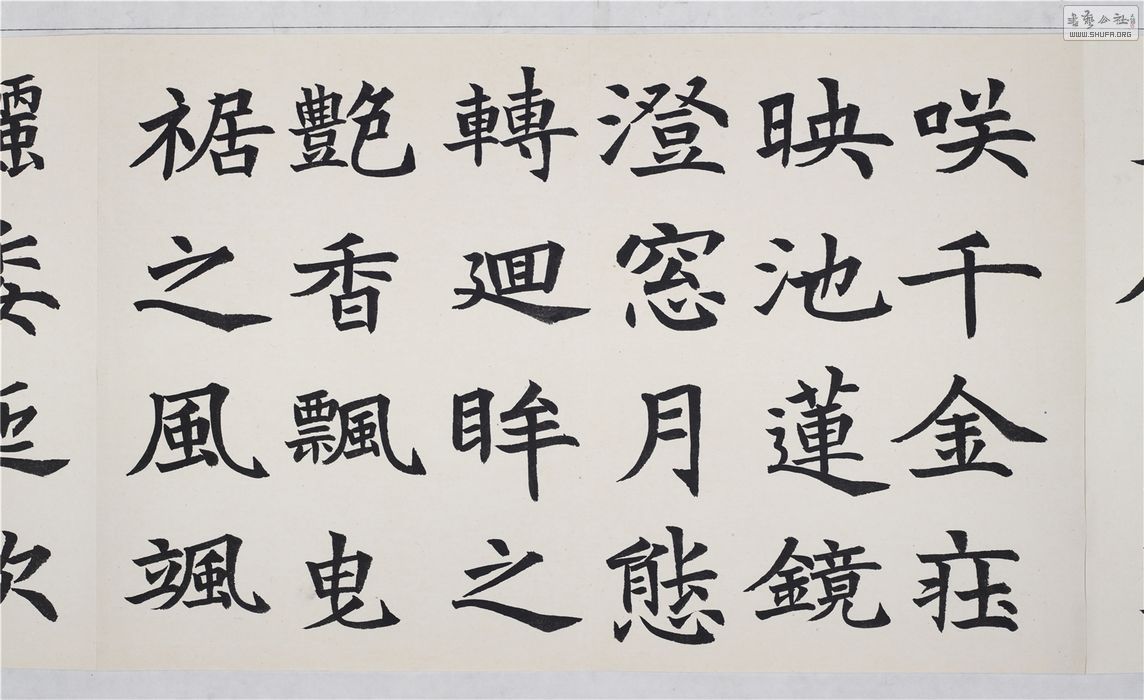 咲千金疰
映池蓮鏡
澄窓月態
轉迴眸之
艷香飄曳
裾之風颯
書藝公社
WWW.SHUFA.ORG